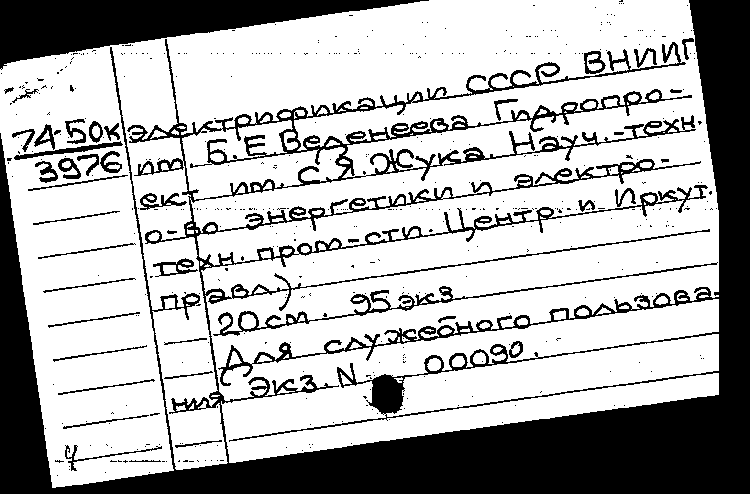 74-50к электрификации СССР. ВНИИГ
3976 им. Б.Е.Веденеева. Гидропро-
ект им. С.Я.Жука. Науч.-техн.
о-во энергетики и электро-
техн. пром-сти. Центр. и Иркут.
правл.).
20 см. 95 экз.
Для служебного пользова-
ния Экз. N 00090.